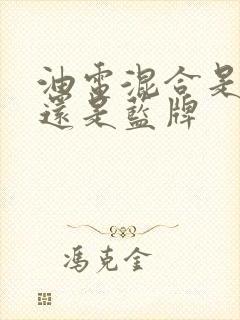 油電混合是
還是藍牌
馮克金